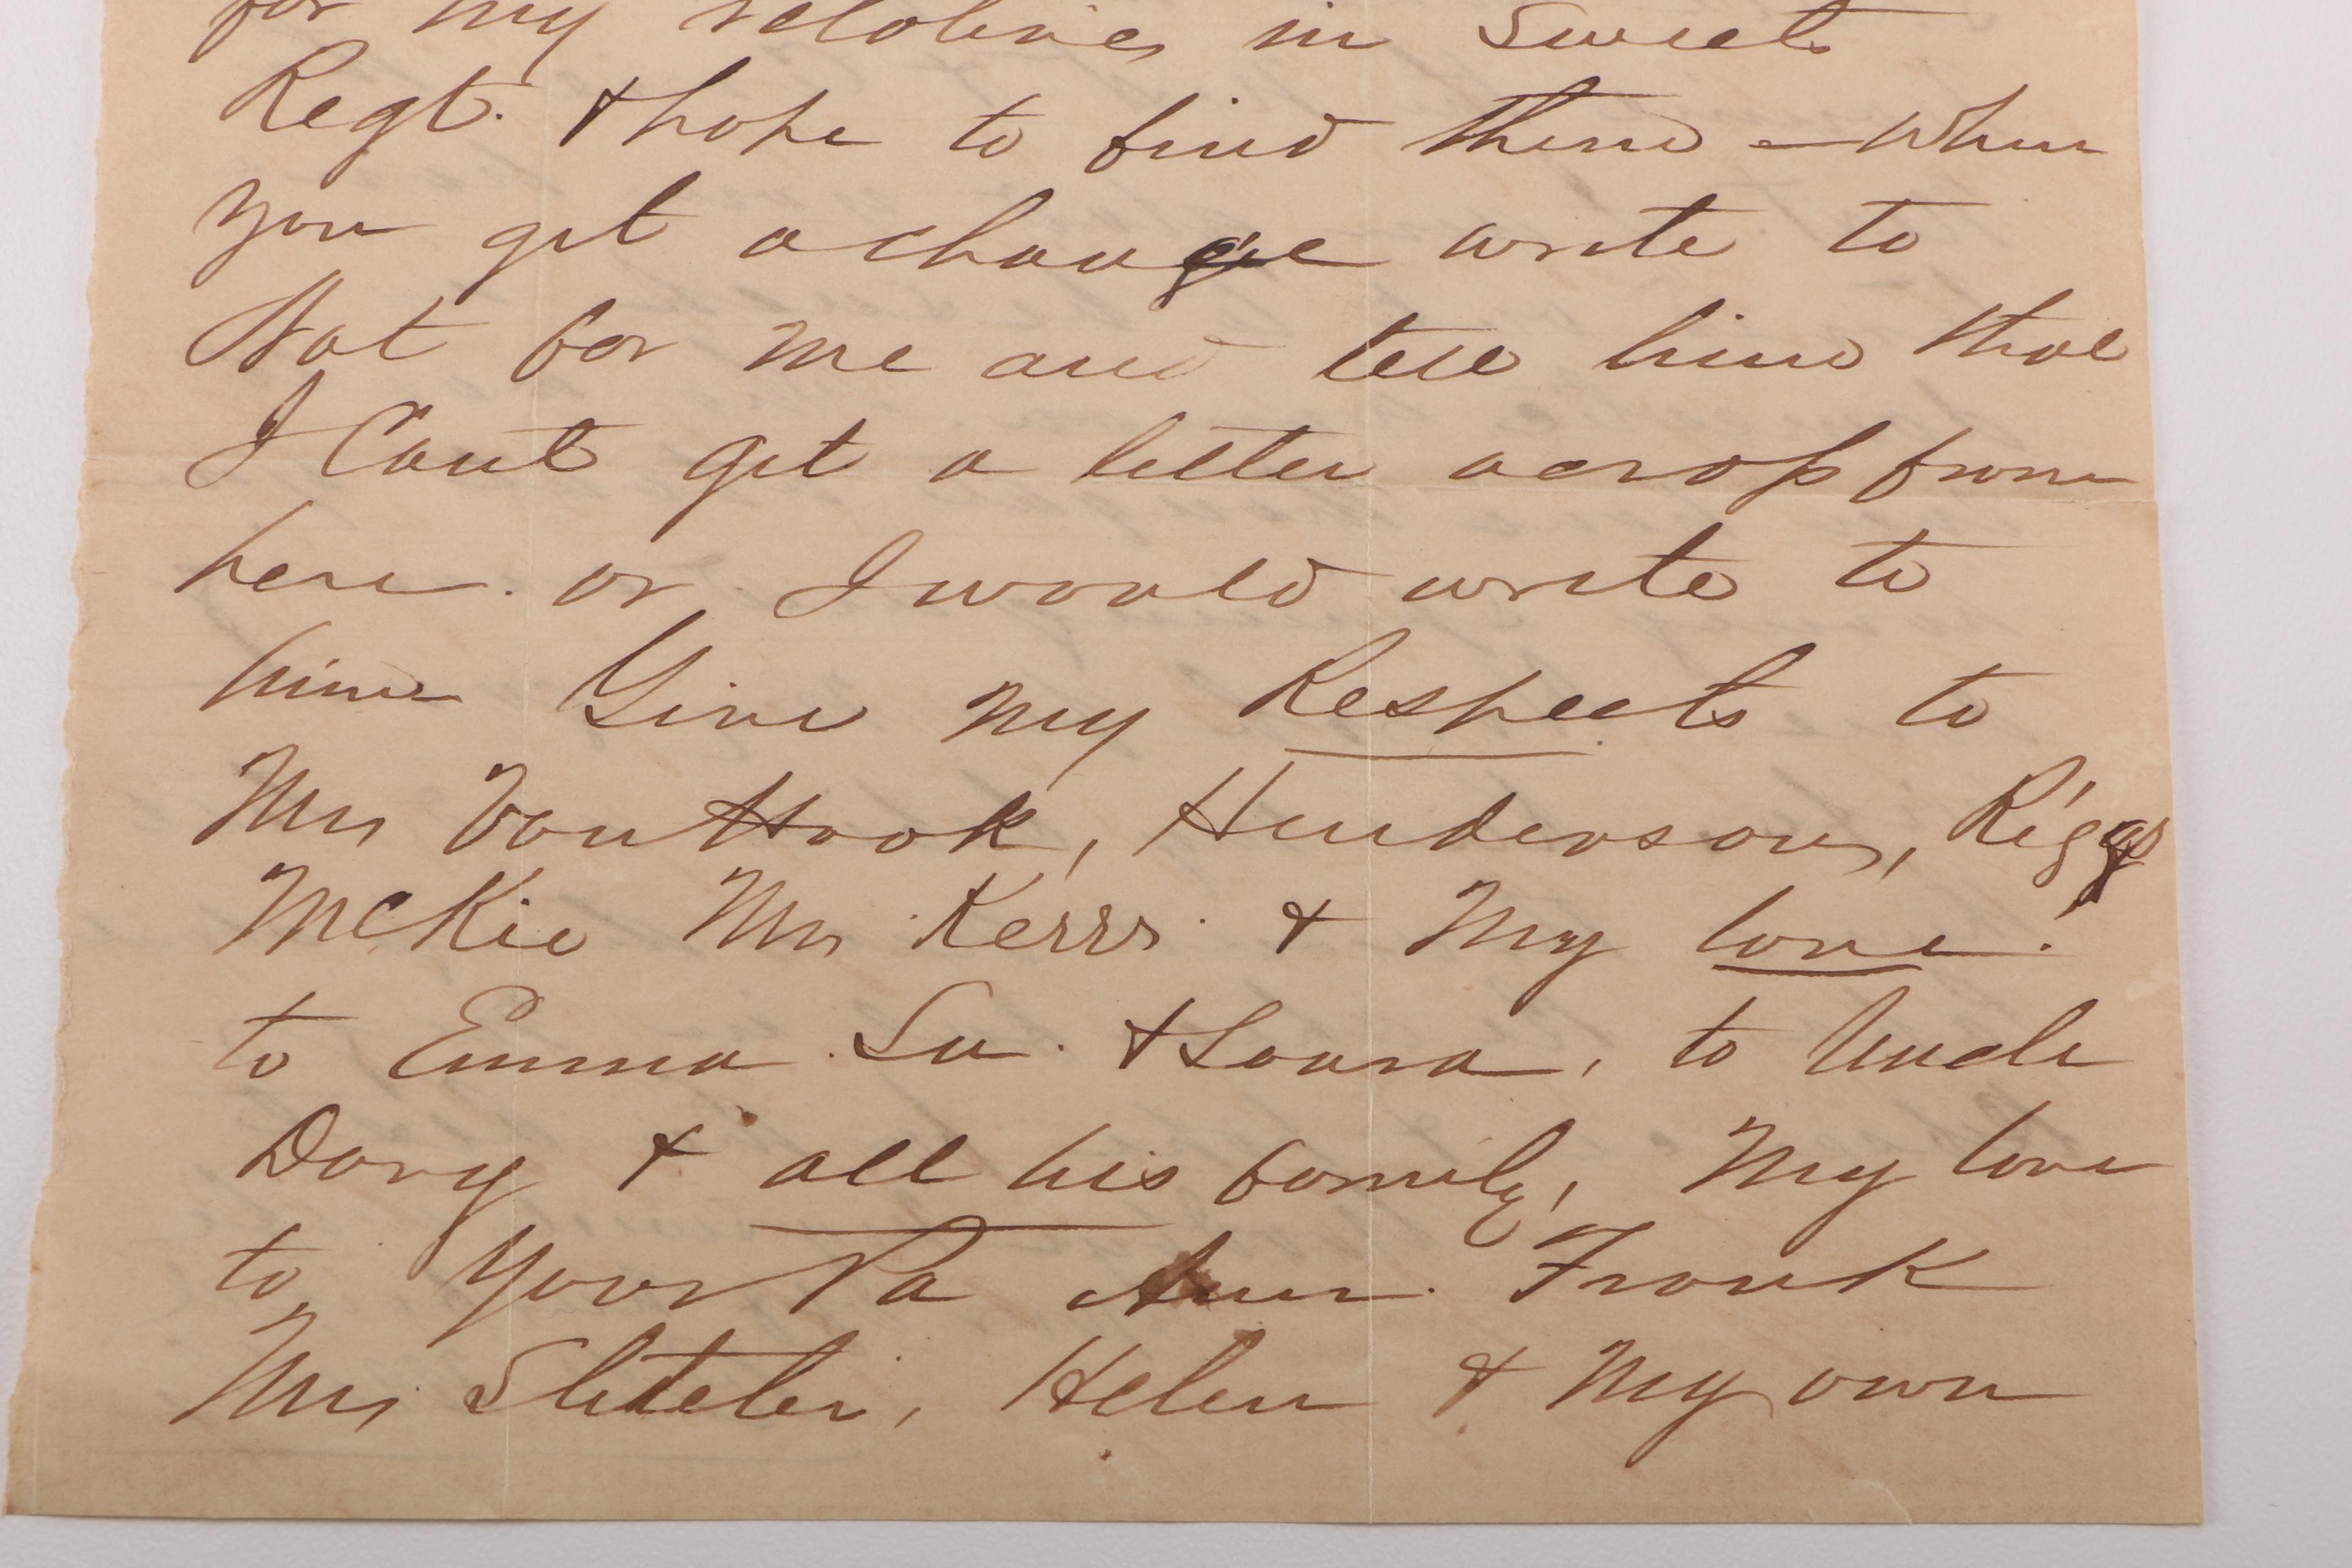 for my relatives in Sweets
Regt. & hope to find them – When
you get a change write to
Nat for me and tell him that
I Cant get a letter across from
here. or I would write to
him Give my Respects to
Mrs Van Hook, Henderson, Riggs
McKie Mrs Kerrs & My love.
to Emma. Su. & Loura, to Uncle
Davy & all his family, My love
to your Pa Ann. Frank
Mrs Helen & My own